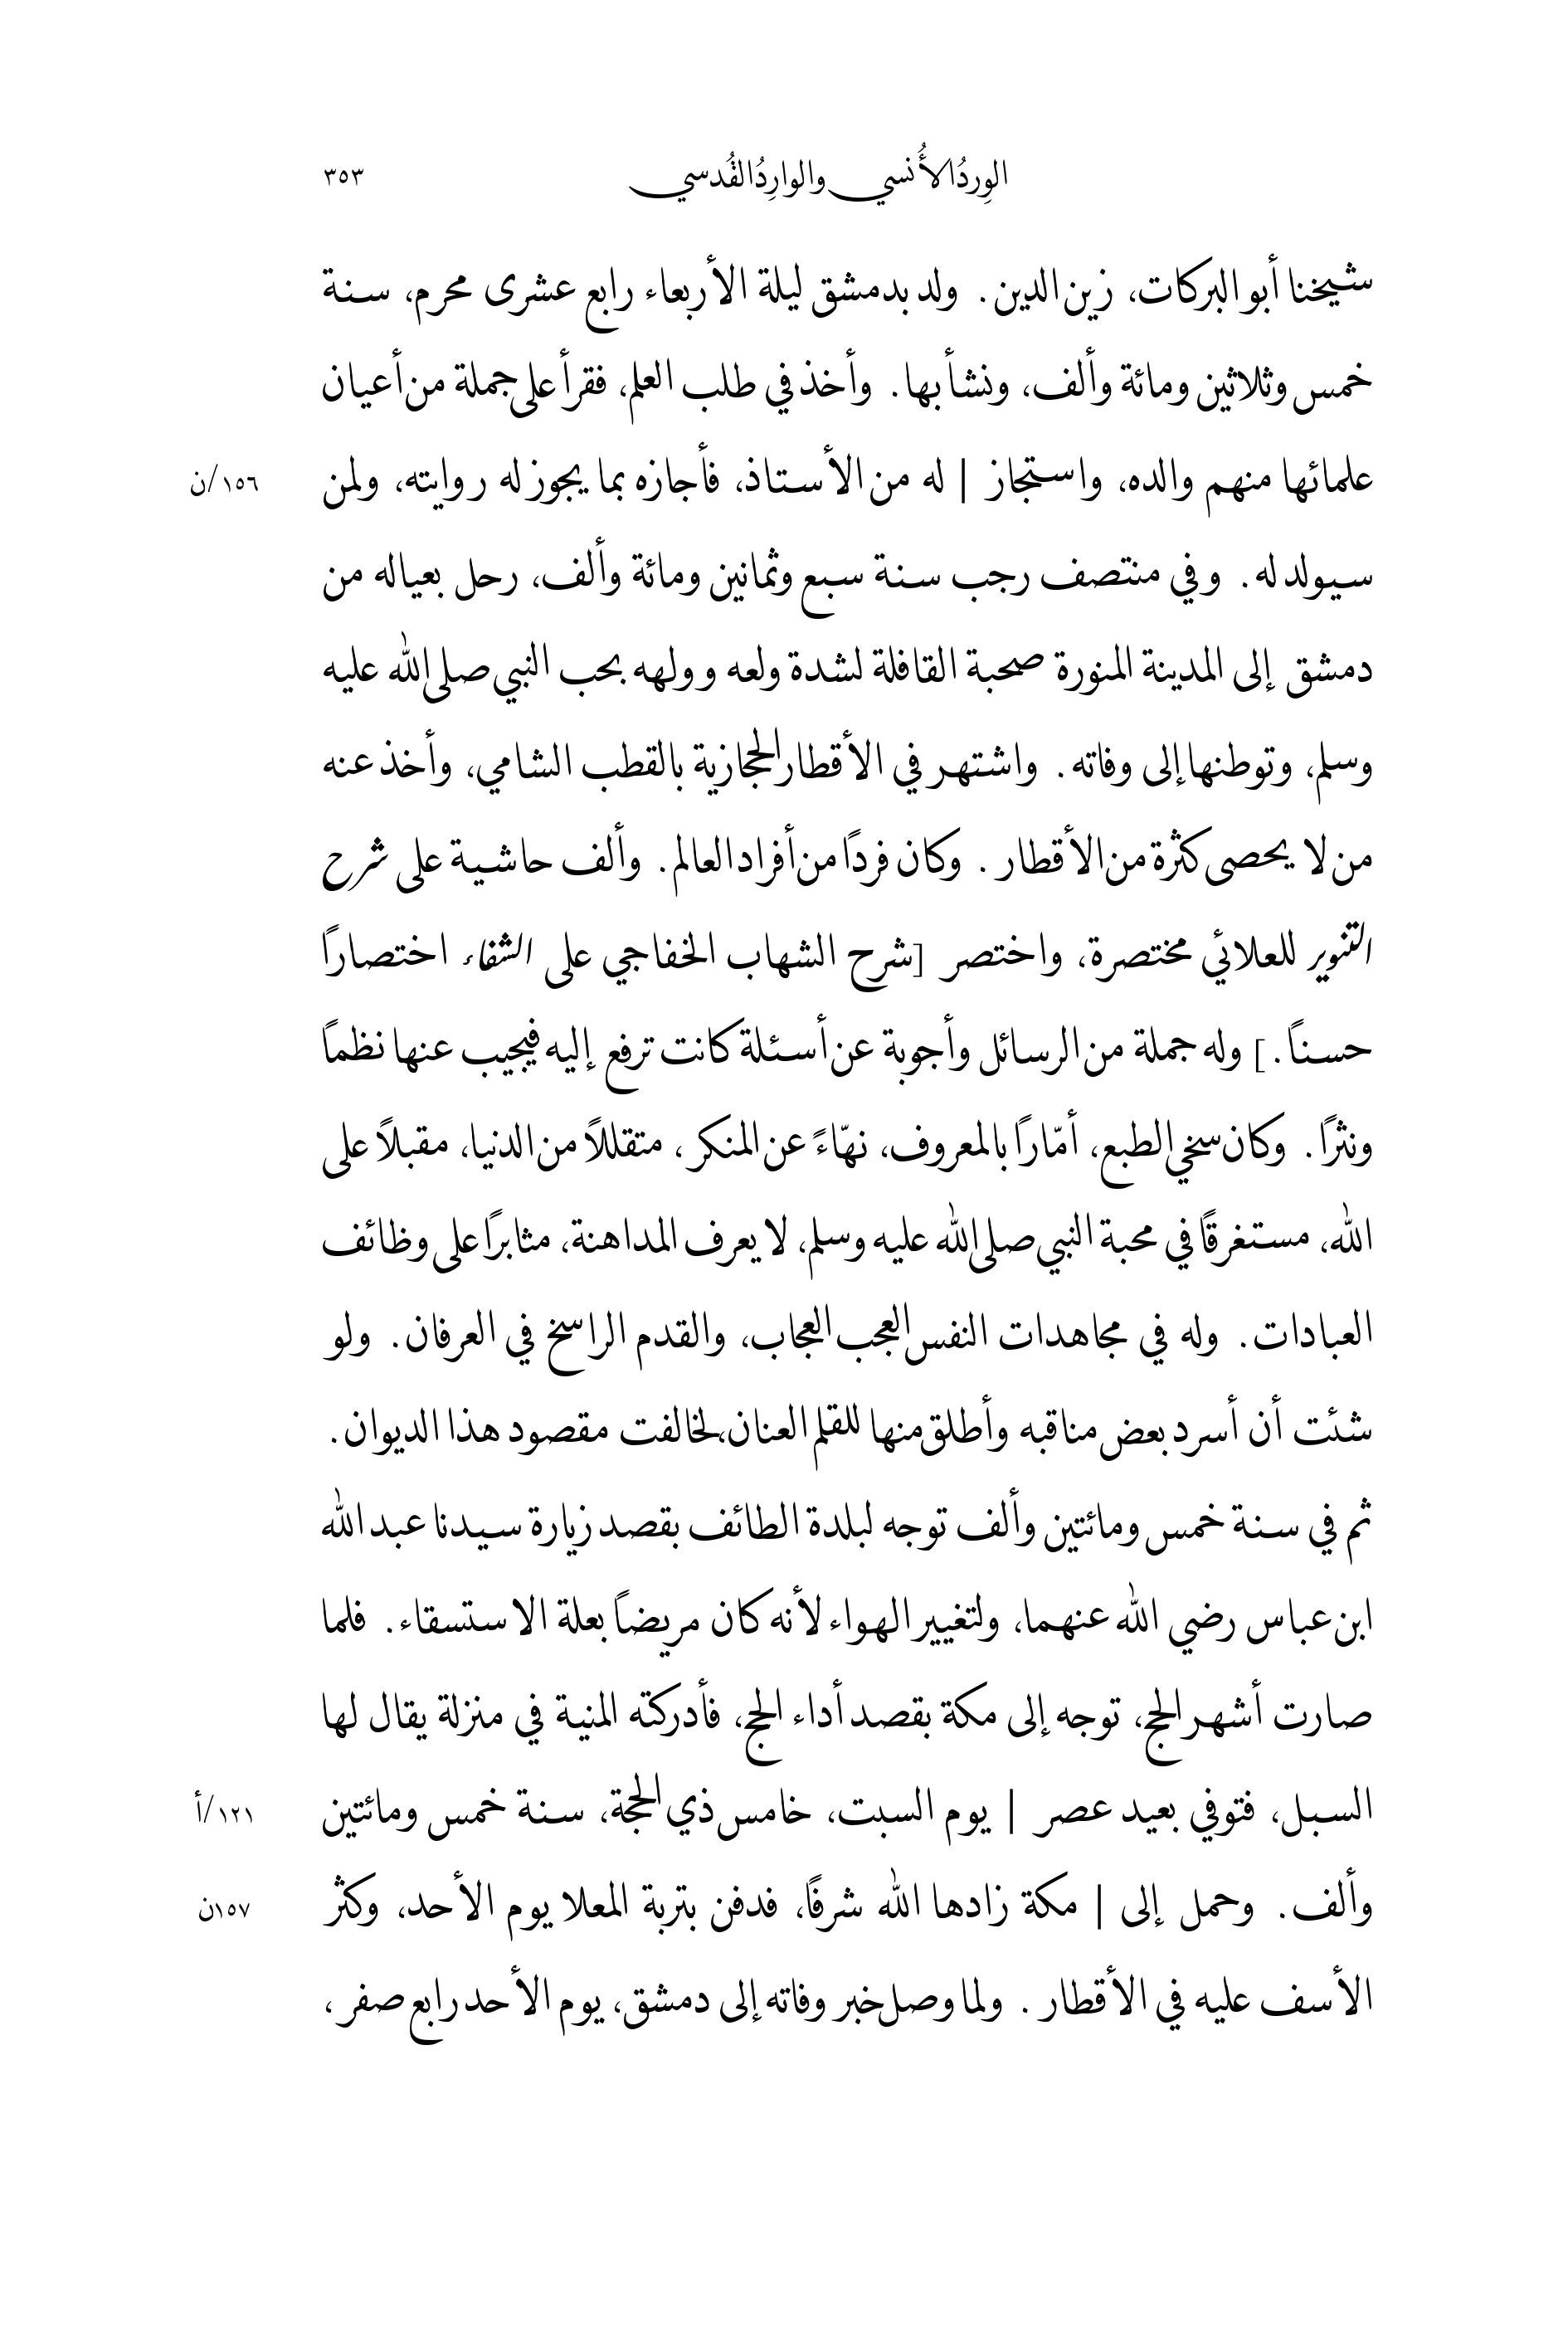 الوِردُ الأُنسي والوارِدُ القُدسي ٣٥٣
شيخنا أبو البركات، زين الدين. ولد بدمشق ليلة الأربعاء رابع عشرى محرم، سنة
خمس وثلاثين ومائة وألف، ونشأ بها. وأخذ في طلب العلم، فقرأ على جملة من أعيان
علمائها منهم والده، واستجاز | له من الأستاذ، فأجازه بما يجوز له روايته، ولمن ١٥٦/ن
سيولد له. وفي منتصف رجب سنة سبع وثمانين ومائة وألف، رحل بعياله من
دمشق إلى المدينة المنورة صحبة القافلة لشدة ولعه وولهه بحب النبي صلى الله عليه
وسلم، وتوطنها إلى وفاته. واشتهر في الأقطار الحجازية بالقطب الشامي، وأخذ عنه
من لا يحصى كثرة من الأقطار. وكان فردًا من أفراد العالم. وألف حاشية على شرح
التنوير للعلائي مختصرة، واختصر [شرح الشهاب الخفاجي على الشفاء اختصارًا
حسنًا.] وله جملة من الرسائل وأجوبة عن أسئلة كانت ترفع إليه فيجيب عنها نظماً
ونثرًا. وكان سخي الطبع، أمّارًا بالمعروف، نهّاءً عن المنكر، متقللاً من الدنيا، مقبلاً على
الله، مستغرقًا في محبة النبي صلى الله عليه وسلم، لا يعرف المداهنة، مثابرًا على وظائف
العبادات. وله في مجاهدات النفس العجب العجاب، والقدم الراسخ في العرفان. ولو
شئت أن أسرد بعض مناقبه وأطلق منها للقلم العنان، لخالفت مقصود هذا الديوان.
ثم في سنة خمس ومائتين وألف توجه لبلدة الطائف بقصد زيارة سيدنا عبد الله
ابن عباس رضي الله عنهما، ولتغيير الهواء لأنه كان مريضاً بعلة الاستسقاء. فلما
صارت أشهر الحج، توجه إلى مكة بقصد أداء الحج، فأدركته المنية في منزلة يقال لها
السبل، فتوفي بعيد عصر | يوم السبت، خامس ذي الحجة، سنة خمس ومائتين ١٢١/أ
وألف. وحمل إلى | مكة زادها الله شرفًا، فدفن بتربة المعلا يوم الأحد، وكثر ١٥٧ن
الأسف عليه في الأقطار. ولما وصل خبر وفاته إلى دمشق، يوم الأحد رابع صفر،